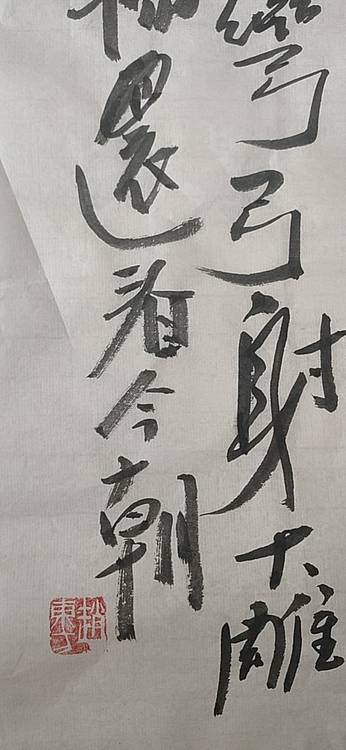 彎弓射大雕
還看今朝